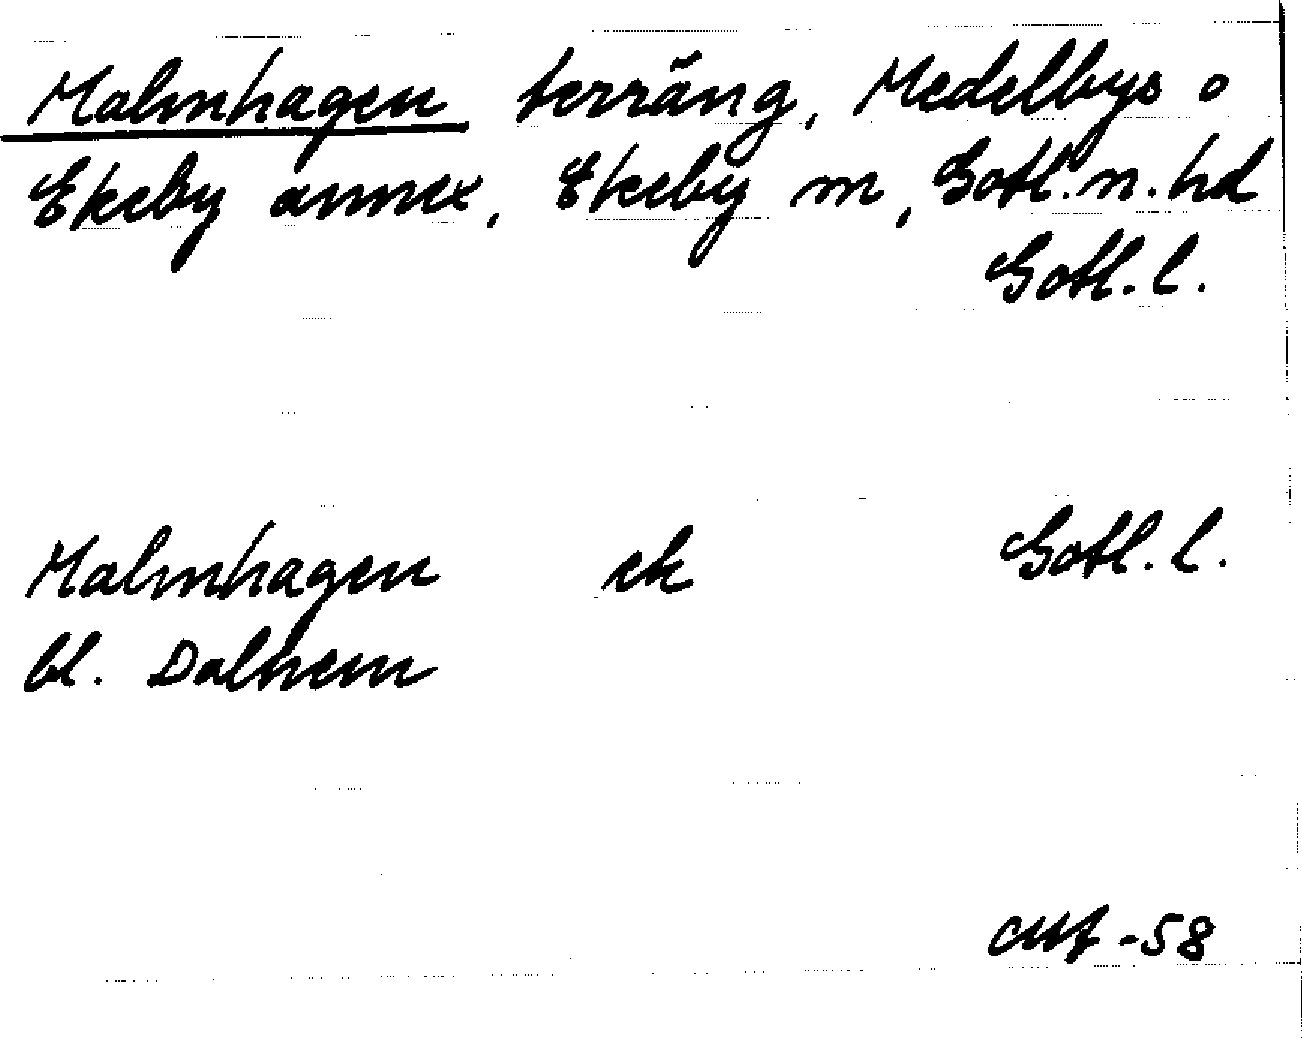 Malmhagen terräng, Medelbys o
Ekeby annex, Ekeby m, Gotl. n. hd
Gotl. l.
Malmhagen ek Gotl. l.
bl. Dalhem
-58